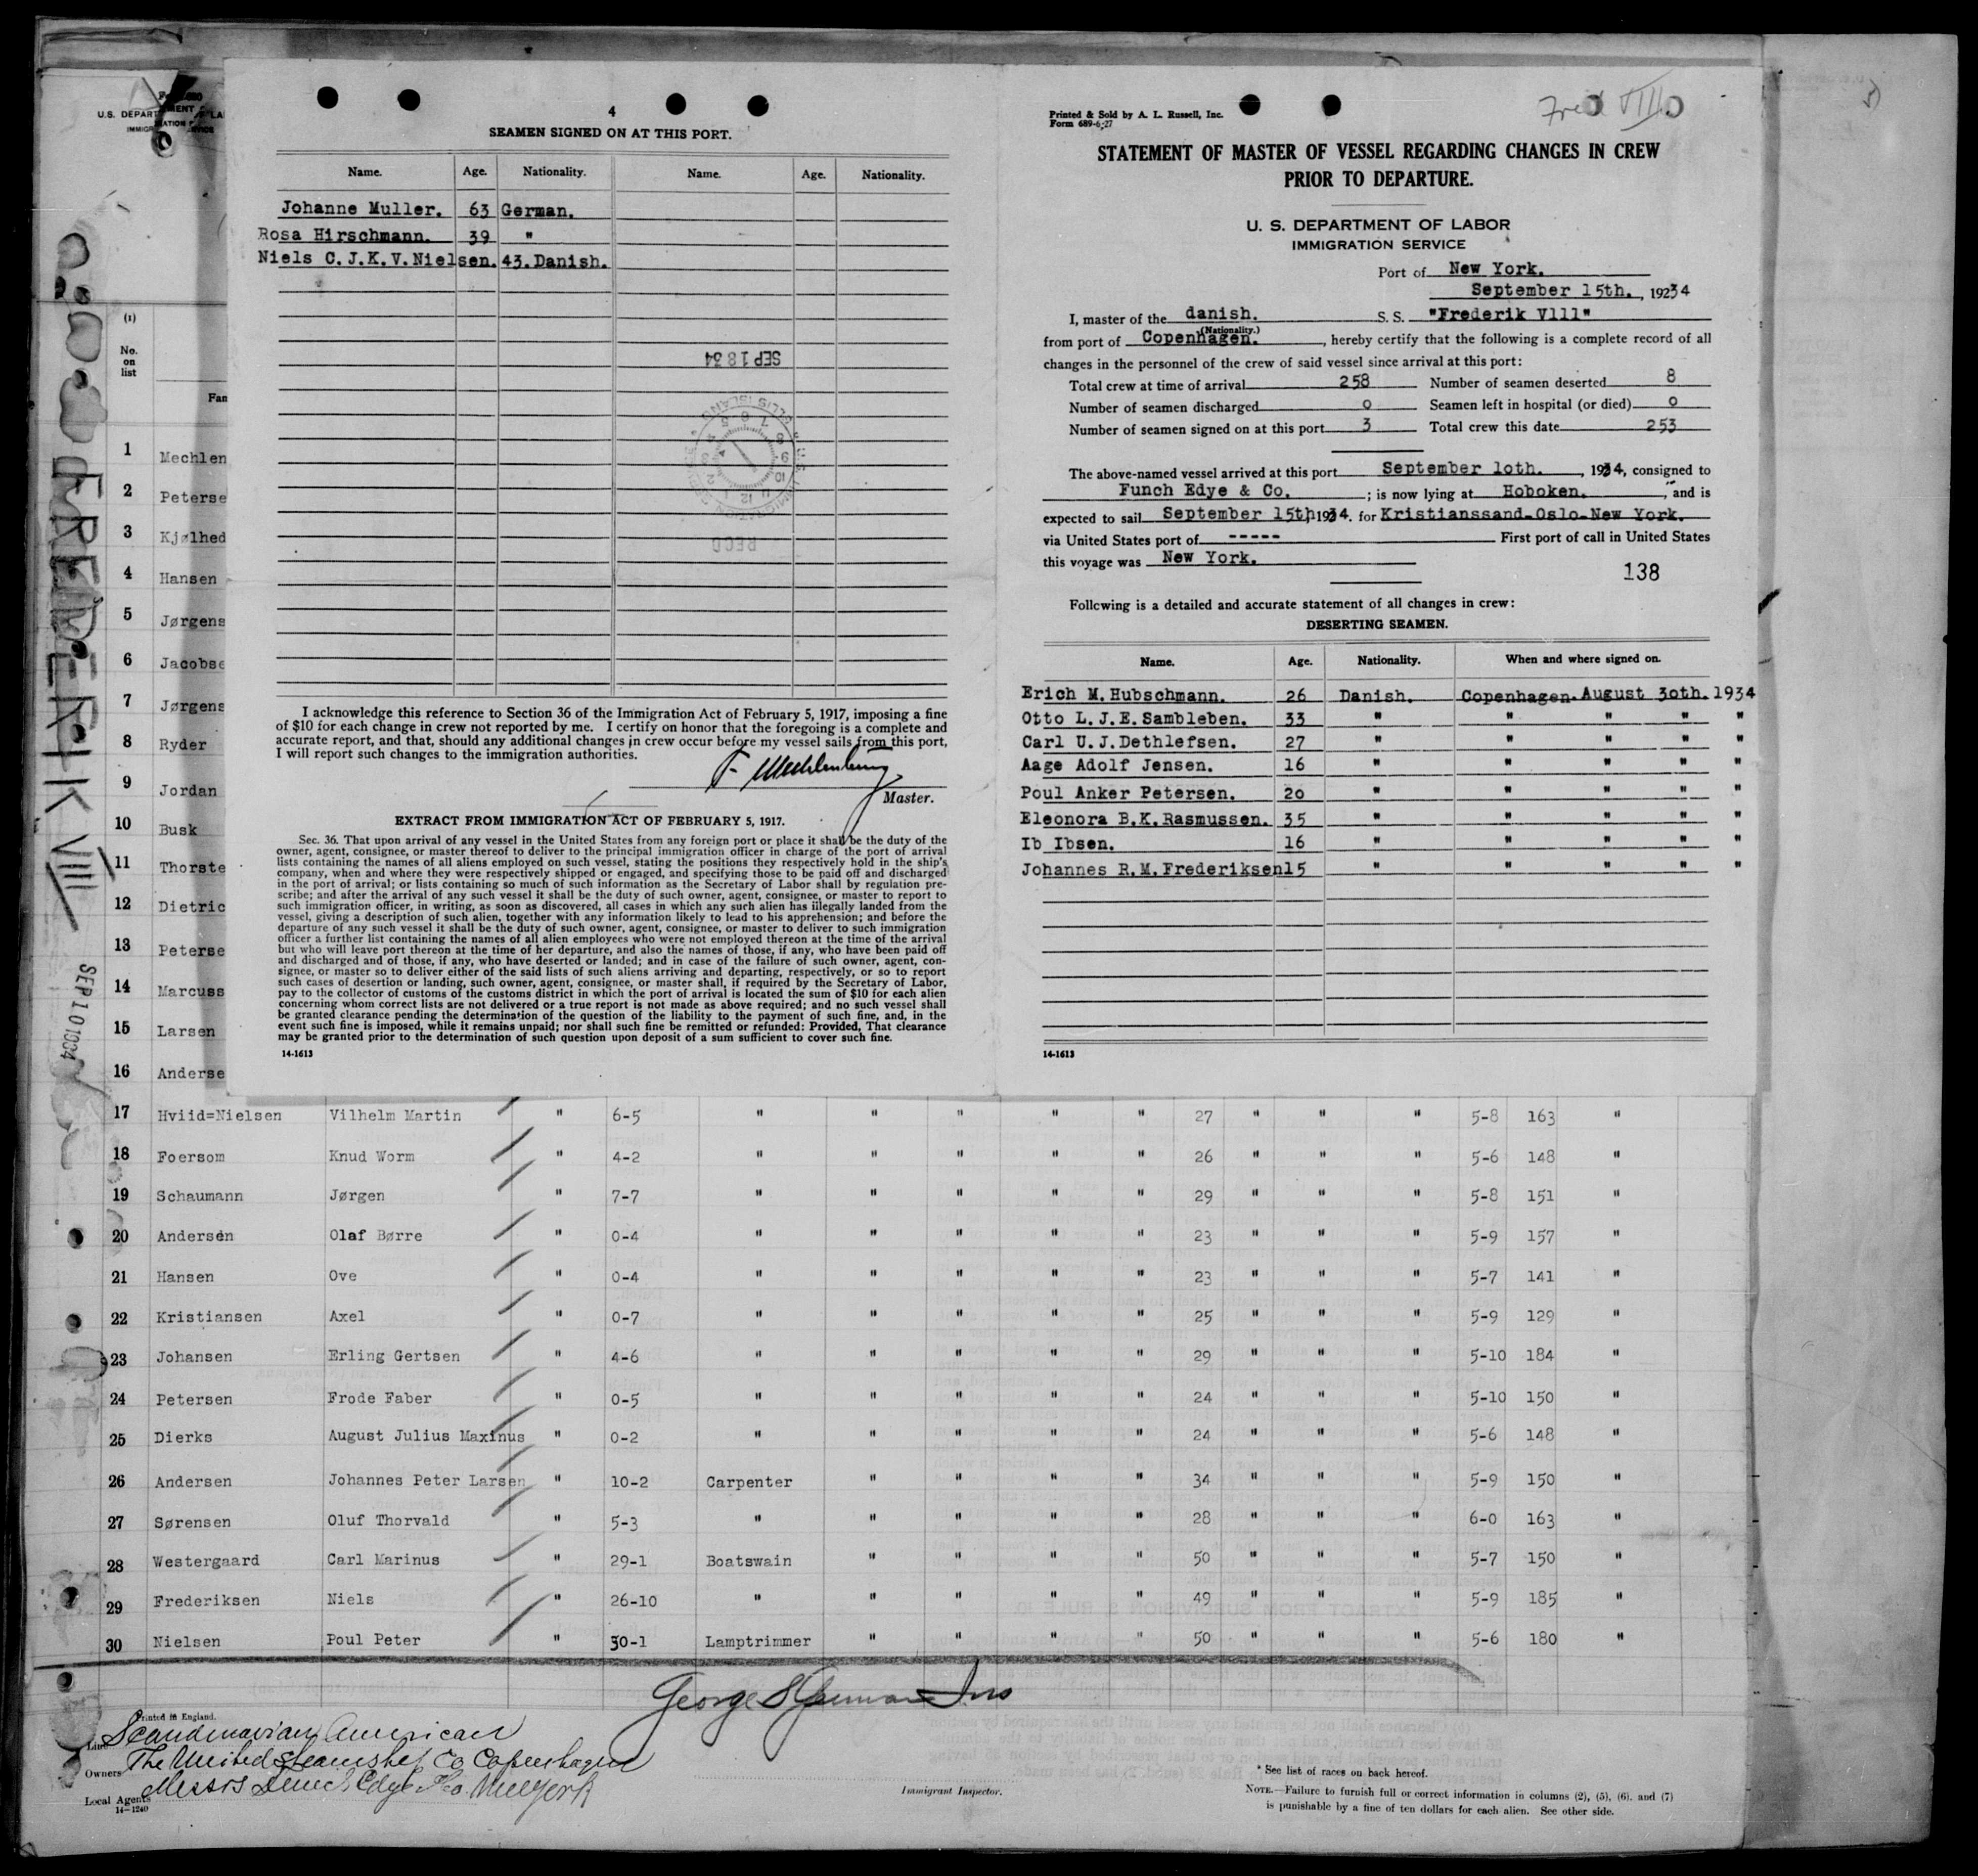 4
SEAMEN SIGNED ON AT THIS PORT.
Name. Age. Nationality. Name. Age. Nationality.
Johanne Muller. 63 German.
Rosa Hirschmann. 39 "
Niels C.J.K.V.Nielsen. 43. Danish.
SEP 18 34
U.S. IMMIGRATION SERVICE ELLIS ISLAND
RECD
I acknowledge this reference to Section 36 of the Immigration Act of February 5, 1917, imposing a fine
of $10 for each change in crew not reported by me. I certify on honor that the foregoing is a complete and
accurate report, and that, should any additional changes in crew occur before my vessel sails from this port,
I will report such changes to the immigration authorities.
Master.
EXTRACT FROM IMMIGRATION ACT OF FEBRUARY 5, 1917.
Sec. 36. That upon arrival of any vessel in the United States from any foreign port or place it shall be the duty of the
owner, agent, consignee, or master thereof to deliver to the principal immigration officer in charge of the port of arrival
lists containing the names of all aliens employed on such vessel, stating the positions they respectively hold in the ship's
company, when and where they were respectively shipped or engaged, and specifying those to be paid off and discharged
in the port of arrival; or lists containing so much of such information as the Secretary of Labor shall by regulation pre-
scribe; and after the arrival of any such vessel it shall be the duty of such owner, agent, consignee, or master to report to
such immigration officer, in writing, as soon as discovered, all cases in which any such alien has illegally landed from the
vessel, giving a description of such alien, together with any information likely to lead to his apprehension; and before the
departure of any such vessel it shall be the duty of such owner, agent, consignee, or master to deliver to such immigration
officer a further list containing the names of all alien employees who were not employed thereon at the time of the arrival
but who will leave port thereon at the time of her departure, and also the names of those, if any, who have been paid off
and discharged and of those, if any, who have deserted or landed; and in case of the failure of such owner, agent, con-
signee, or master so to deliver either of the said lists of such aliens arriving and departing, respectively, or so to report
such cases of desertion or landing, such owner, agent, consignee, or master shall, if required by the Secretary of Labor,
pay to the collector of customs of the customs district in which the port of arrival is located the sum of $10 for each alien
concerning whom correct lists are not delivered or a true report is not made as above required; and no such vessel shall
be granted clearance pending the determination of the question of the liability to the payment of such fine, and, in the
event such fine is imposed, while it remains unpaid; nor shall such fine be remitted or refunded: Provided, That clearance
may be granted prior to the determination of such question upon deposit of a sum sufficient to cover such fine.
14-1613
Printed & Sold by A. L. Russell, Inc.
Form 689-6-27
Fred VIII
STATEMENT OF MASTER OF VESSEL REGARDING CHANGES IN CREW
PRIOR TO DEPARTURE.
U. S. DEPARTMENT OF LABOR
IMMIGRATION SERVICE
Port of New York.
September 15th., 19234
I, master of the danish. S. S. "Frederik V111"
(Nationality.)
from port of Copenhagen., hereby certify that the following is a complete record of all
changes in the personnel of the crew of said vessel since arrival at this port:
Total crew at time of arrival 258 Number of seamen deserted 8
Number of seamen discharged 0 Seamen left in hospital (or died) 0
Number of seamen signed on at this port 3 Total crew this date 253
The above-named vessel arrived at this port September 1oth., 1934, consigned to
Funch Edye & Co.; is now lying at Hoboken., and is
expected to sail September 15th1934. for Kristianssand-Oslo-New York.
via United States port of ----- First port of call in United States
this voyage was New York.
138
Following is a detailed and accurate statement of all changes in crew:
DESERTING SEAMEN.
Name. Age. Nationality. When and where signed on.
Erich M.Hubschmann. 26 Danish. Copenhagen. August 3oth. 1934
Otto L.J.E.Sambleben. 33 " " " " "
Carl U.J.Dethlefsen. 27 " " " " "
Aage Adolf Jensen. 16 " " " " "
Poul Anker Petersen. 2o " " " " "
Eleonora B.K.Rasmussen. 35 " " " " "
Ib Ibsen. 16 " " " " "
Johannes R.M.Frederiksen15 " " " " "
14-1613
U.S. DEPART
IMMIGR
(1)
No.
on
list
Fan
FREDERIK VIII
SEP 10 1934
1 Mechlen
2 Peterse
3 Kjølhed
4 Hansen
5 Jørgens
6 Jacobse
7 Jørgens
8 Ryder
9 Jordan
10 Busk
11 Thorste
12 Dietric
13 Peterse
14 Marcuss
15 Larsen
16 Anderse
17 Hviid=Nielsen Vilhelm Martin " 6-5 " " " " " 27 " " " 5-8 163 "
18 Foersom Knud Worm " 4-2 " " " " " 26 " " " 5-6 148 "
19 Schaumann Jørgen " 7-7 " " " " " 29 " " " 5-8 151 "
20 Andersen Olaf Børre " 0-4 " " " " " 23 " " " 5-9 157 "
21 Hansen Ove " 0-4 " " " " " 23 " " " 5-7 141 "
22 Kristiansen Axel " 0-7 " " " " " 25 " " " 5-9 129 "
23 Johansen Erling Gertsen " 4-6 " " " " " 29 " " " 5-10 184 "
24 Petersen Frode Faber " 0-5 " " " " " 24 " " " 5-10 150 "
25 Dierks August Julius Maxinus " 0-2 " " " " " 24 " " " 5-6 148 "
26 Andersen Johannes Peter Larsen " 10-2 Carpenter " " " " 34 " " " 5-9 150 "
27 Sørensen Oluf Thorvald " 5-3 " " " " " 28 " " " 6-0 163 "
28 Westergaard Carl Marinus " 29-1 Boatswain " " " " 50 " " " 5-7 150 "
29 Frederiksen Niels " 26-10 " " " " " 49 " " " 5-9 185 "
30 Nielsen Poul Peter " 30-1 Lamptrimmer " " " " 50 " " " 5-6 180 "
George
Printed in England.
Line Scandinavian American
Owners The United Steamship Co Copenhagen
Local Agents Messrs Funch Edye & Co New York
14-1240
Immigrant Inspector.
* See list of races on back hereof.
NOTE.—Failure to furnish full or correct information in columns (2), (5), (6), and (7)
is punishable by a fine of ten dollars for each alien. See other side.